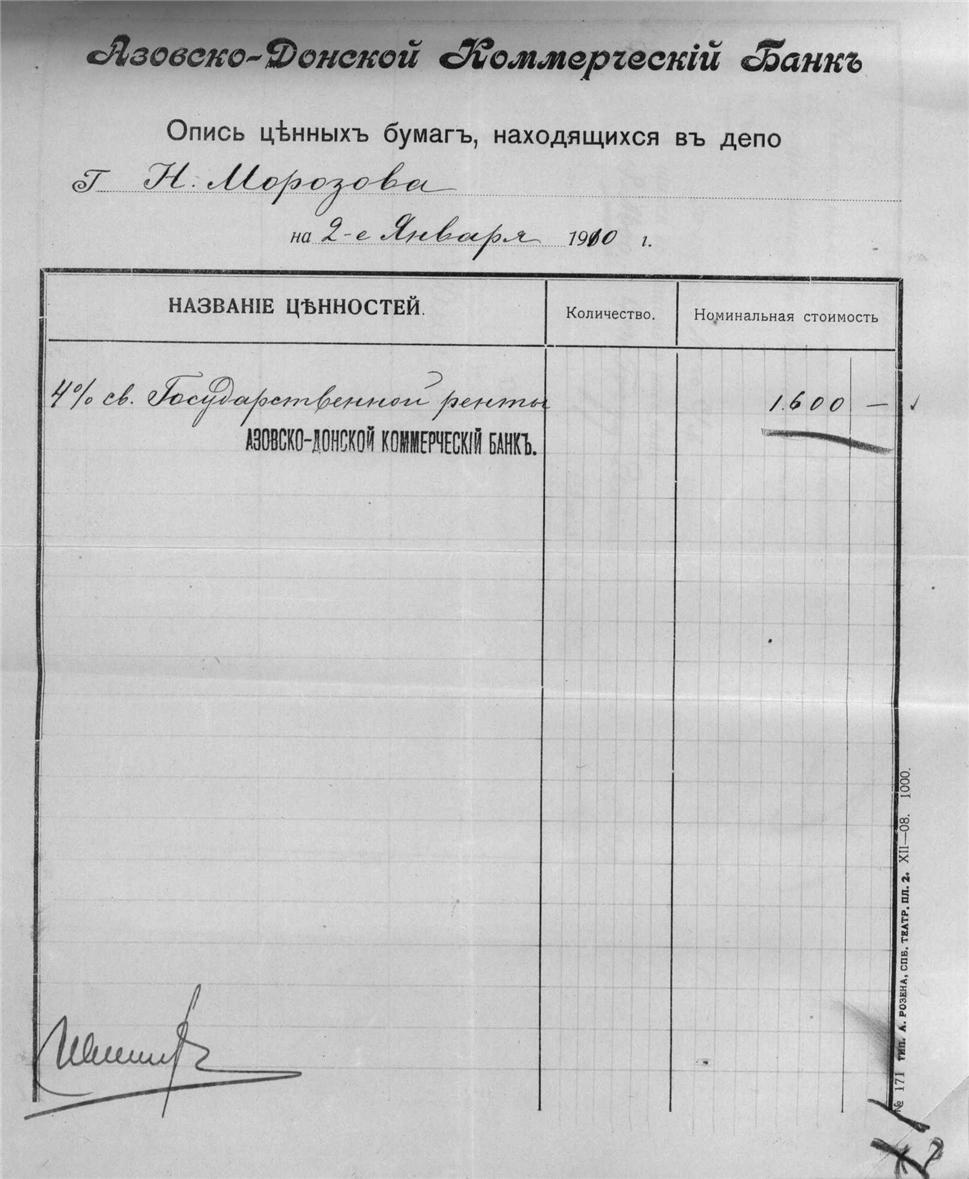 Азовско-Донской Коммерческій Банкъ
Опись цѣнныхъ бумагъ, находящихся въ депо
Г Н. Морозова
на 2-е Января 1910 г.
НАЗВАНІЕ ЦѢННОСТЕЙ. Количество. Номинальная стоимость
4% св. Государственной ренты 1.600 —
АЗОВСКО-ДОНСКОЙ КОММЕРЧЕСКІЙ БАНКЪ.
№ 171 ТИП. А. РОЗЕНА, СПБ. ТЕАТР. ПЛ. 2. XII—08. 1000.